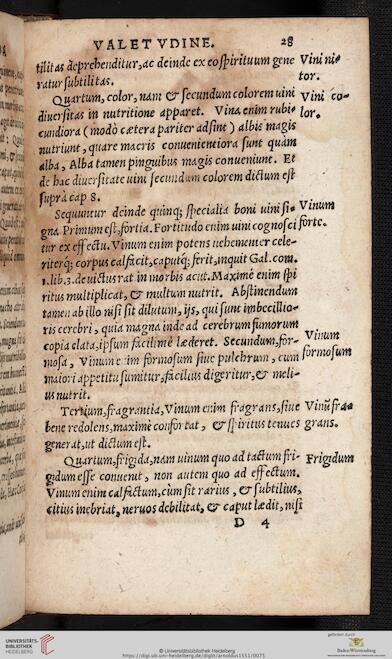 VALETVDINE. 28
tilitas deprehenditur, ac deinde ex eo spirituum gene
ratur subtilitas.
Vini nitor.
Quartum, color, nam & secundum colorem uini
diuersitas in nutritione apparet. Vina enim rubicundiora
(modò cætera pariter adsint) albis magis
nutriunt, quare macris conuenientiora sunt quàm
alba, Alba tamen pinguibus magis conueniunt. Et
de hac diuersitate uini secundum colorem dictum est
suprà cap 8.
Vini color.
Sequuntur deinde quinq; specialia boni uini signa
Primum est, fortia. Fortitudo enim uini cognoscitur
ex effectu. Vinum enim potens uehementer celeriterq;
corpus calfacit, caputq; ferit, inquit Gal. com.
lib. 3. de uictus rat in morbis acut. Maximè enim spi
ritus multiplicat, & multum nutrit. Abstinendum
tamen ab illo nisi sit dilutum, ijs, qui sunt imbecillioris
cerebri, quia magna inde ad cerebrum fumorum
copia elata, ipsum facilimè læderet. Secundum, formosa,
Vinum enim formosum siue pulchrum, cum
maiori appetitu sumitur, facilius digeritur, & melius
nutrit.
Vinum forte.
Vinum formosum
Tertium, fragrantia, Vinum enim fragrans, siue
bene redolens, maximè confortat, & spiritus tenues
generat, ut dictum est.
Vinū fragrans.
Quartum, frigida, nam uinum quo ad tactum frigidum
esse conuenit, non autem quo ad effectum.
Vinum enim calfactum, cùm sit rarius, & subtilius,
citius inebriat, neruos debilitat, & caput lædit, nisi
Frigidum
D 4
UNIVERSITÄTS-
BIBLIOTHEK
HEIDELBERG
© Universitätsbibliothek Heidelberg
https://digi.ub.uni-heidelberg.de/diglit/arnoldus1551/0075
gefördert durch
Baden-Württemberg